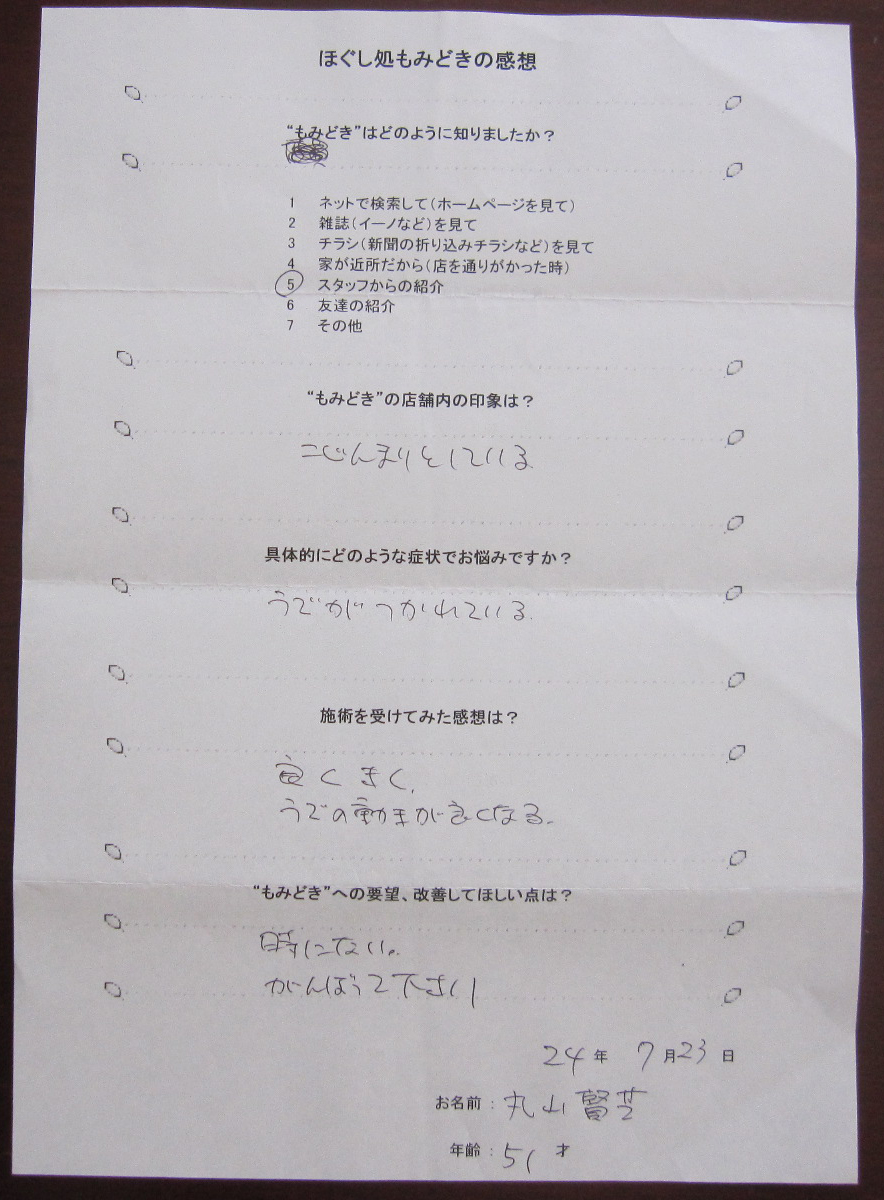 ほぐし処もみどきの感想
“もみどき”はどのように知りましたか？
1 ネットで検索して（ホームページを見て）
2 雑誌（イーノなど）を見て
3 チラシ（新聞の折り込みチラシなど）を見て
4 家が近所だから（店を通りがかった時）
5 スタッフからの紹介
6 友達の紹介
7 その他
“もみどき”の店舗内の印象は？
こじんまりとしている
具体的にどのような症状でお悩みですか？
うでがつかれている.
施術を受けてみた感想は？
良くきく.
うでの動きが良くなる.
“もみどき”への要望、改善してほしい点は？
時にない。
がんばって下さい
24 年 7 月 23 日
お名前 : 丸山賢
年齢 : 51 才